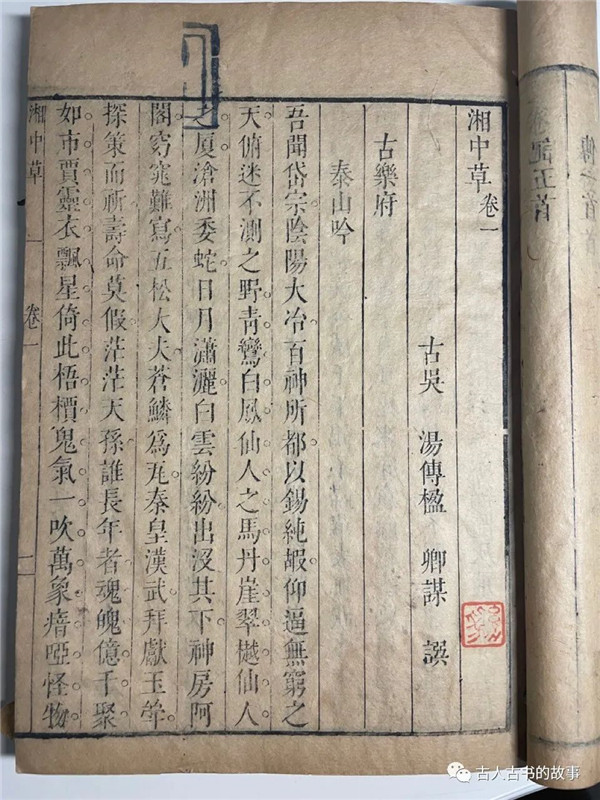 湘中草卷一
古吳 湯傳楹 卿謀 譔
古樂府
泰山吟
吾聞岱宗陰陽大冶百神所都以錫純嘏仰逼無窮之
天俯迷不測之野青鸞白鳳仙人之馬丹崖翠樾仙人
之厦滄洲委蛇日月瀟灑白雲紛紛出沒其下神房阿
閣窈窕難寫五松大夫蒼鱗爲瓦秦皇漢武拜獻玉斝
探策而祈壽命莫假茫茫天孫誰長年者魂魄億千聚
如市賈靈衣飄星倚此梧檟鬼氣一吹萬象瘖啞怪物
湘中草 卷一 一
記五首
古人古书的故事